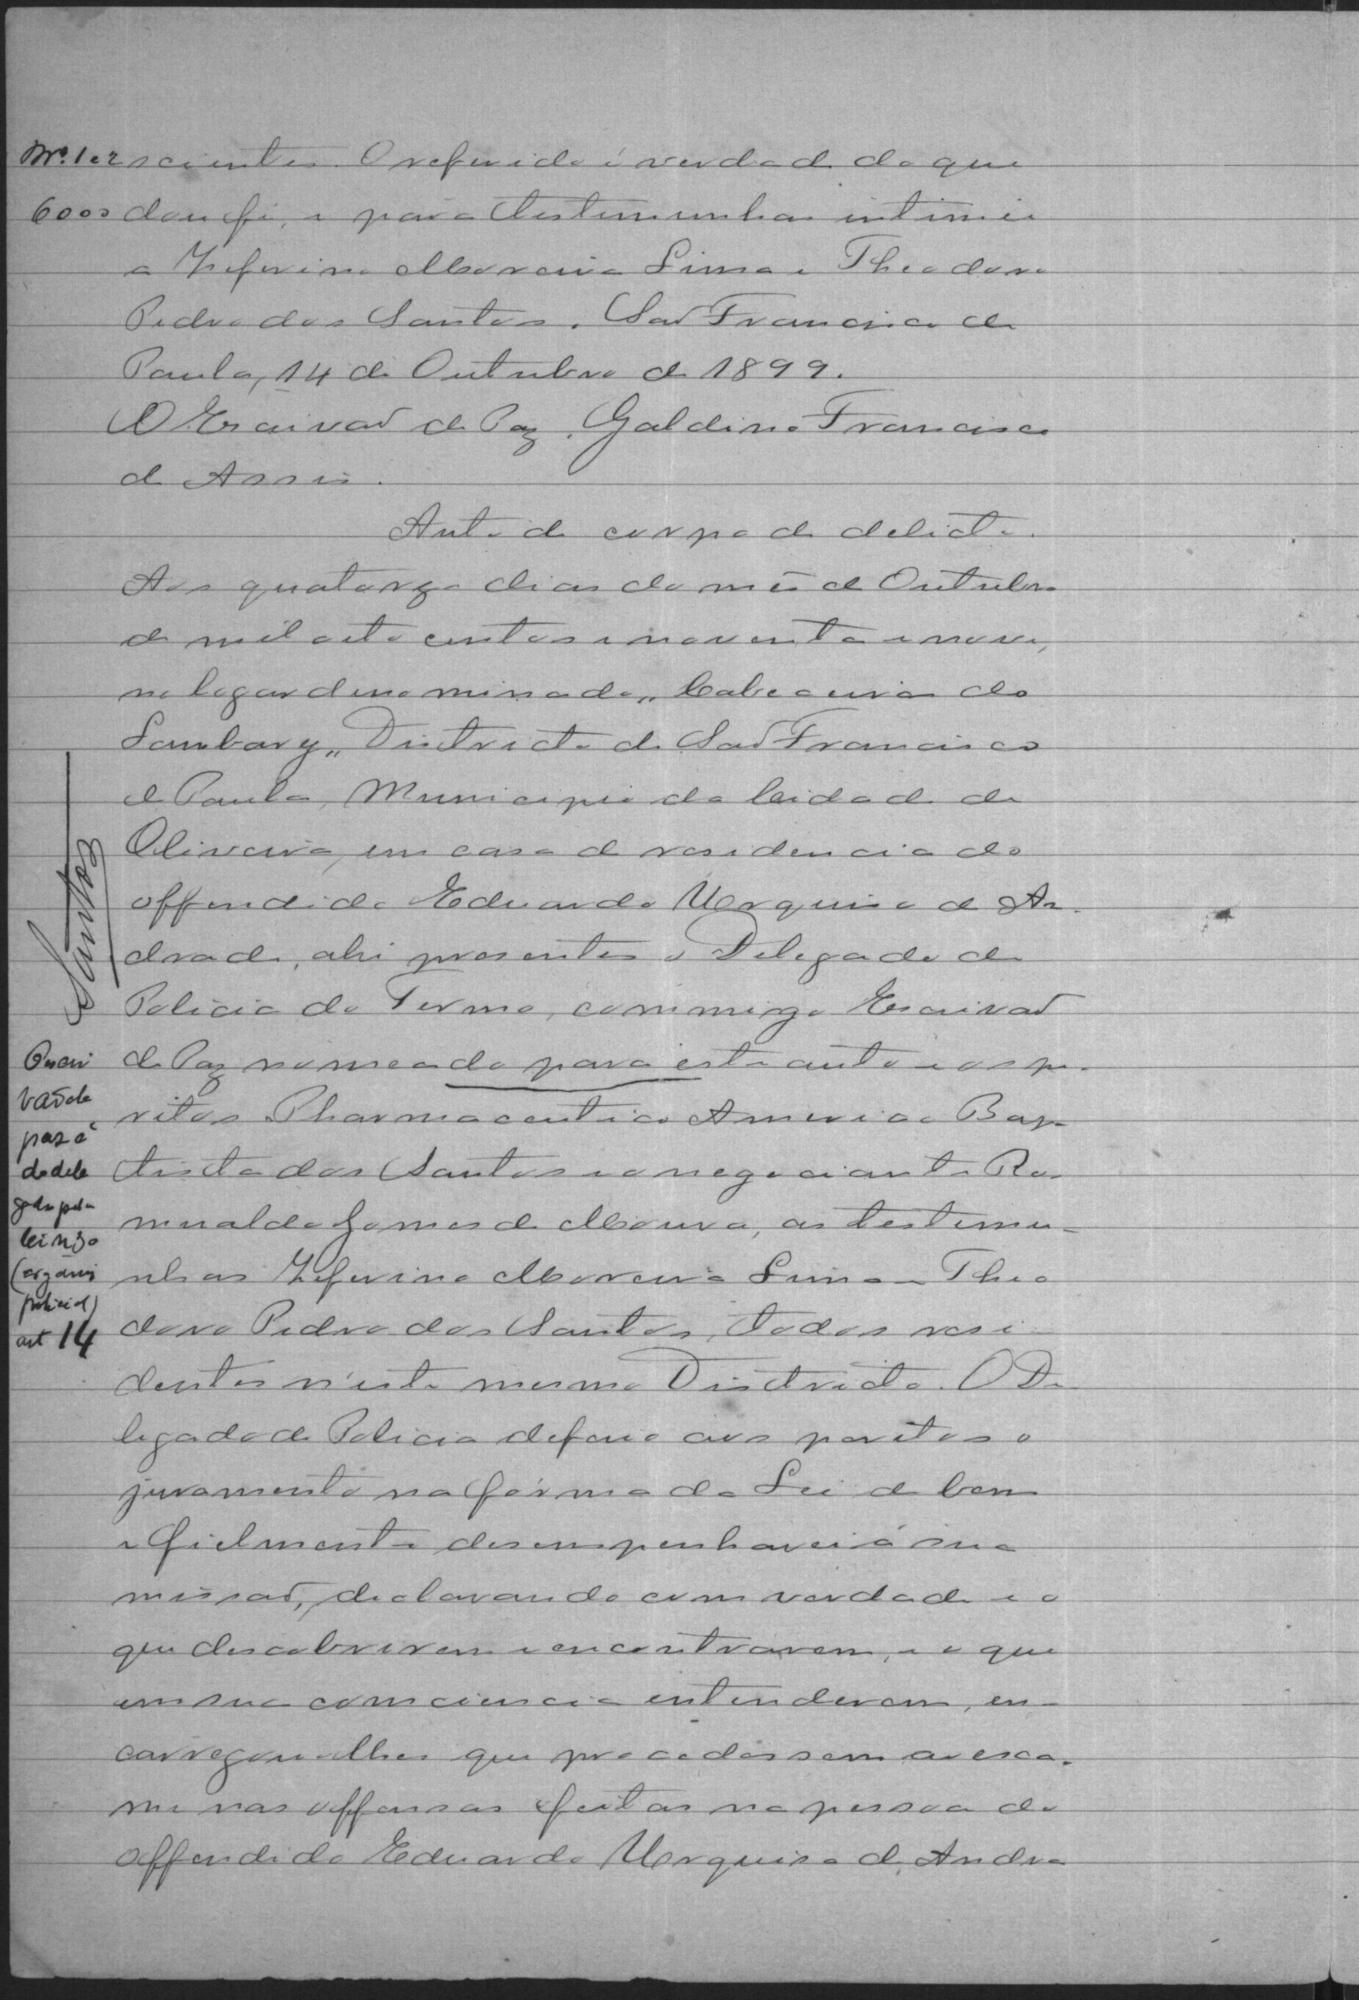 Nº 1 e 2 scientes. O referido é verdade do que
6000 dou fé, e para testemunhas intimei
a Zeferino Moreira Lima e Theodoro
Pedro dos Santos. São Francisco de
Paula, 14 de Outubro de 1899.
O Escrivão de Paz, Galdino Francisco
de Assis.
Auto de corpo de delicto.
Aos quatorze dias do mês de Outubro
de mil oito centos e noventa e nove,
no logar denominado „Cabeceiras do
Lambary„ Districto de São Francisco
de Paula, Municipio da Cidade de
Oliveira, em casa de residencia do
offendido Eduardo Urquisa de An-
drade, ahi presentes o Delegado de
Policia do Termo, commigo Escrivão
de Paz nomeado para este auto e os pe-
ritos Pharmaceutico Americo Bap-
tista dos Santos e o negociante Ro-
mualdo Gomes de Moura, as testemu-
nhas Zeferino Moreira Lima e Theo
doro Pedro dos Santos, todos resi-
dentes n'este mesmo Districto. O De-
legado de Policia deferio aos peritos o
juramento na fórma da Lei de bem
e fielmente desempenharei á sua
missão, declarando com verdade e o
que descobrirem e encontrarem, e o que
em sua comciencia entenderem, en-
carregou-lhes que procedessem a exa-
me nas offensas feitas na pessoa do
offendido Eduardo Urquisa de Andra
Santos
Escri
vão de
paz é
do dele
gado pela
lei nº 30
(organis
policial)
art 14